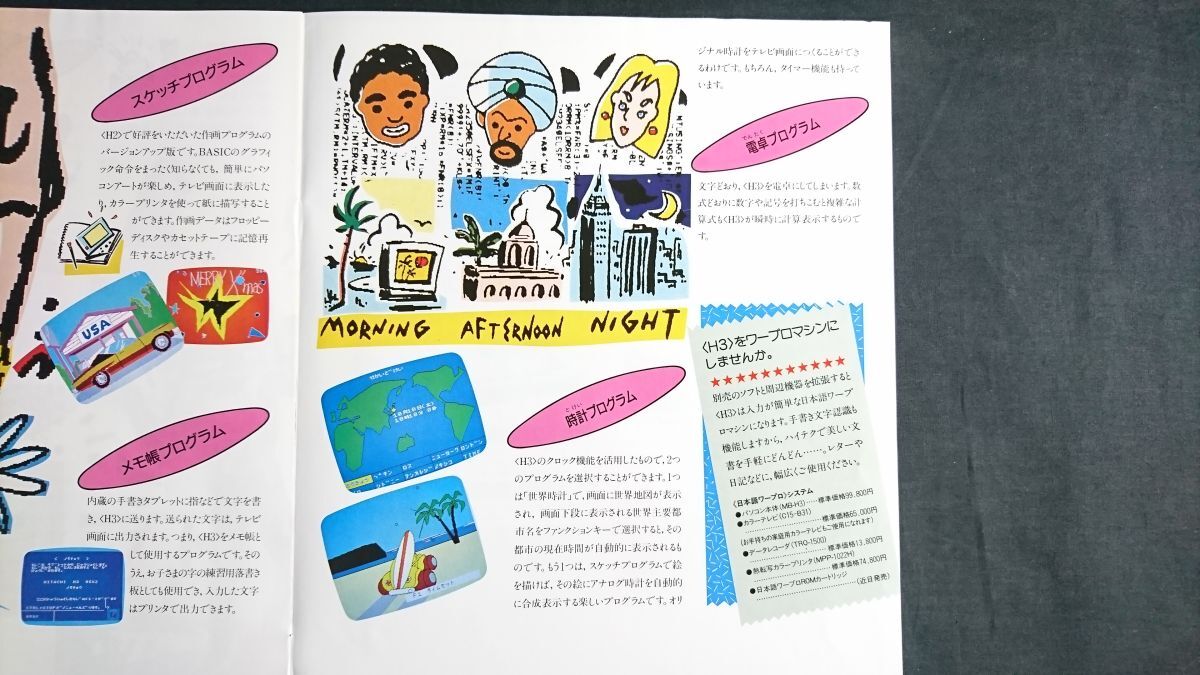 スケッチプログラム
〈H2〉で好評をいただいた作画プログラムの
バージョンアップ版です。BASICのグラフィ
ック命令をまったく知らなくても、簡単にパソ
コンアートが楽しめ、テレビ画面に表示した
り、カラープリンタを使って紙に描写すること
ができます。作画データはフロッピー
ディスクやカセットテープに記憶再
生することができます。
MERRY X'mas
USA
メモ帳プログラム
内蔵の手書きタブレットに指などで文字を書
き、〈H3〉に送ります。送られた文字は、テレビ
画面に出力されます。つまり、〈H3〉をメモ帳と
して使用するプログラムです。その
うえ、お子さまの字の練習用落書き
板としても使用でき、入力した文字
はプリンタで出力できます。
MORNING AFTERNOON NIGHT
せかいどけい
時計プログラム
とけい
〈H3〉のクロック機能を活用したもので、2つ
のプログラムを選択することができます。1つ
は「世界時計」で、画面に世界地図が表示
され、画面下段に表示される世界主要都
市名をファンクションキーで選択すると、その
都市の現在時間が自動的に表示されるも
のです。もう1つは、スケッチプログラムで絵
を描けば、その絵にアナログ時計を自動的
に合成表示する楽しいプログラムです。オリ
ジナル時計をテレビ画面につくることができ
るわけです。もちろん、タイマー機能も持って
います。
でんたく
電卓プログラム
文字どおり、〈H3〉を電卓にしてしまいます。数
式どおりに数字や記号を打ちこむと複雑な計
算式も〈H3〉が瞬時に計算表示するもので
す。
〈H3〉をワープロマシンに
しませんか。
★★★★★★★★★★★★
別売のソフトと周辺機器を拡張すると
〈H3〉は入力が簡単な日本語ワープ
ロマシンになります。手書き文字認識も
機能しますから、ハイテクで美しい文
書を手軽にどんどん……。レターや
日記などに、幅広くご使用ください。
〈日本語ワープロ〉システム
●パソコン本体(MB-H3)……標準価格99,800円
●カラーテレビ(C15-B31)
……標準価格85,000円
(お手持ちの家庭用カラーテレビもご使用になれます)
●データレコーダ(TRQ-1500)
……標準価格13,800円
●熱転写カラープリンタ(MPP-1022H)
……標準価格74,800円
●日本語ワープロROMカートリッジ
……(近日発売)